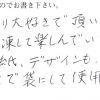 のでお書き下さい。
り大好きで頂い
凍して楽しんでい
紙、デザインも
て袋にして使用